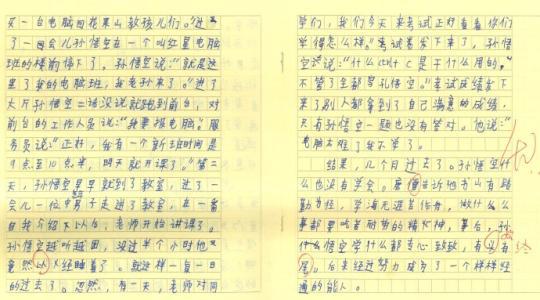 买一台电脑回花果山教孩儿们。"过
了一会儿孙悟空在一个叫红星电脑
班的楼前停下了。孙悟空说:"就是这
里了我的电脑班,我老孙来了。"进了
大厅孙悟空二话没说就跑到前台,对
前台的工作人员说:"我要报电脑。"服
务员说:"正好,我有一个新班时间是
9点至10点半,明天就开课了。"第二
天,孙悟空早早就到了教室,过了一
会儿一位中男子走进了教室,在一番
自我介绍下以后,老师开始讲课了。
孙悟空越听越困,没过半个小时他
竟然以经睡着了。就这样一日一日
的过去了。忽然,有一天,老师对同
学们,我们今天来考试正好看看你们
学得怎么样。"考试卷发下来了,孙悟
空说:"什么ctrl c是干什么用的。"
不管了全部写孔悟空。"考试成绩发下
来了别人都拿到了自己满意的成绩,
只有孙悟空一题也没有答对。他说:"
电脑太难了我不学了。
结果,几个月过去了。孙悟空什
么也没有学会。唐僧告诉他书山有路
勤为径,学海无涯苦作舟,做什么
事都里吃苦耐劳的精神,事后,孙
什么悟空学什么都专心致致,有
尾。后来经过努力成为了一个样样
通的能人。